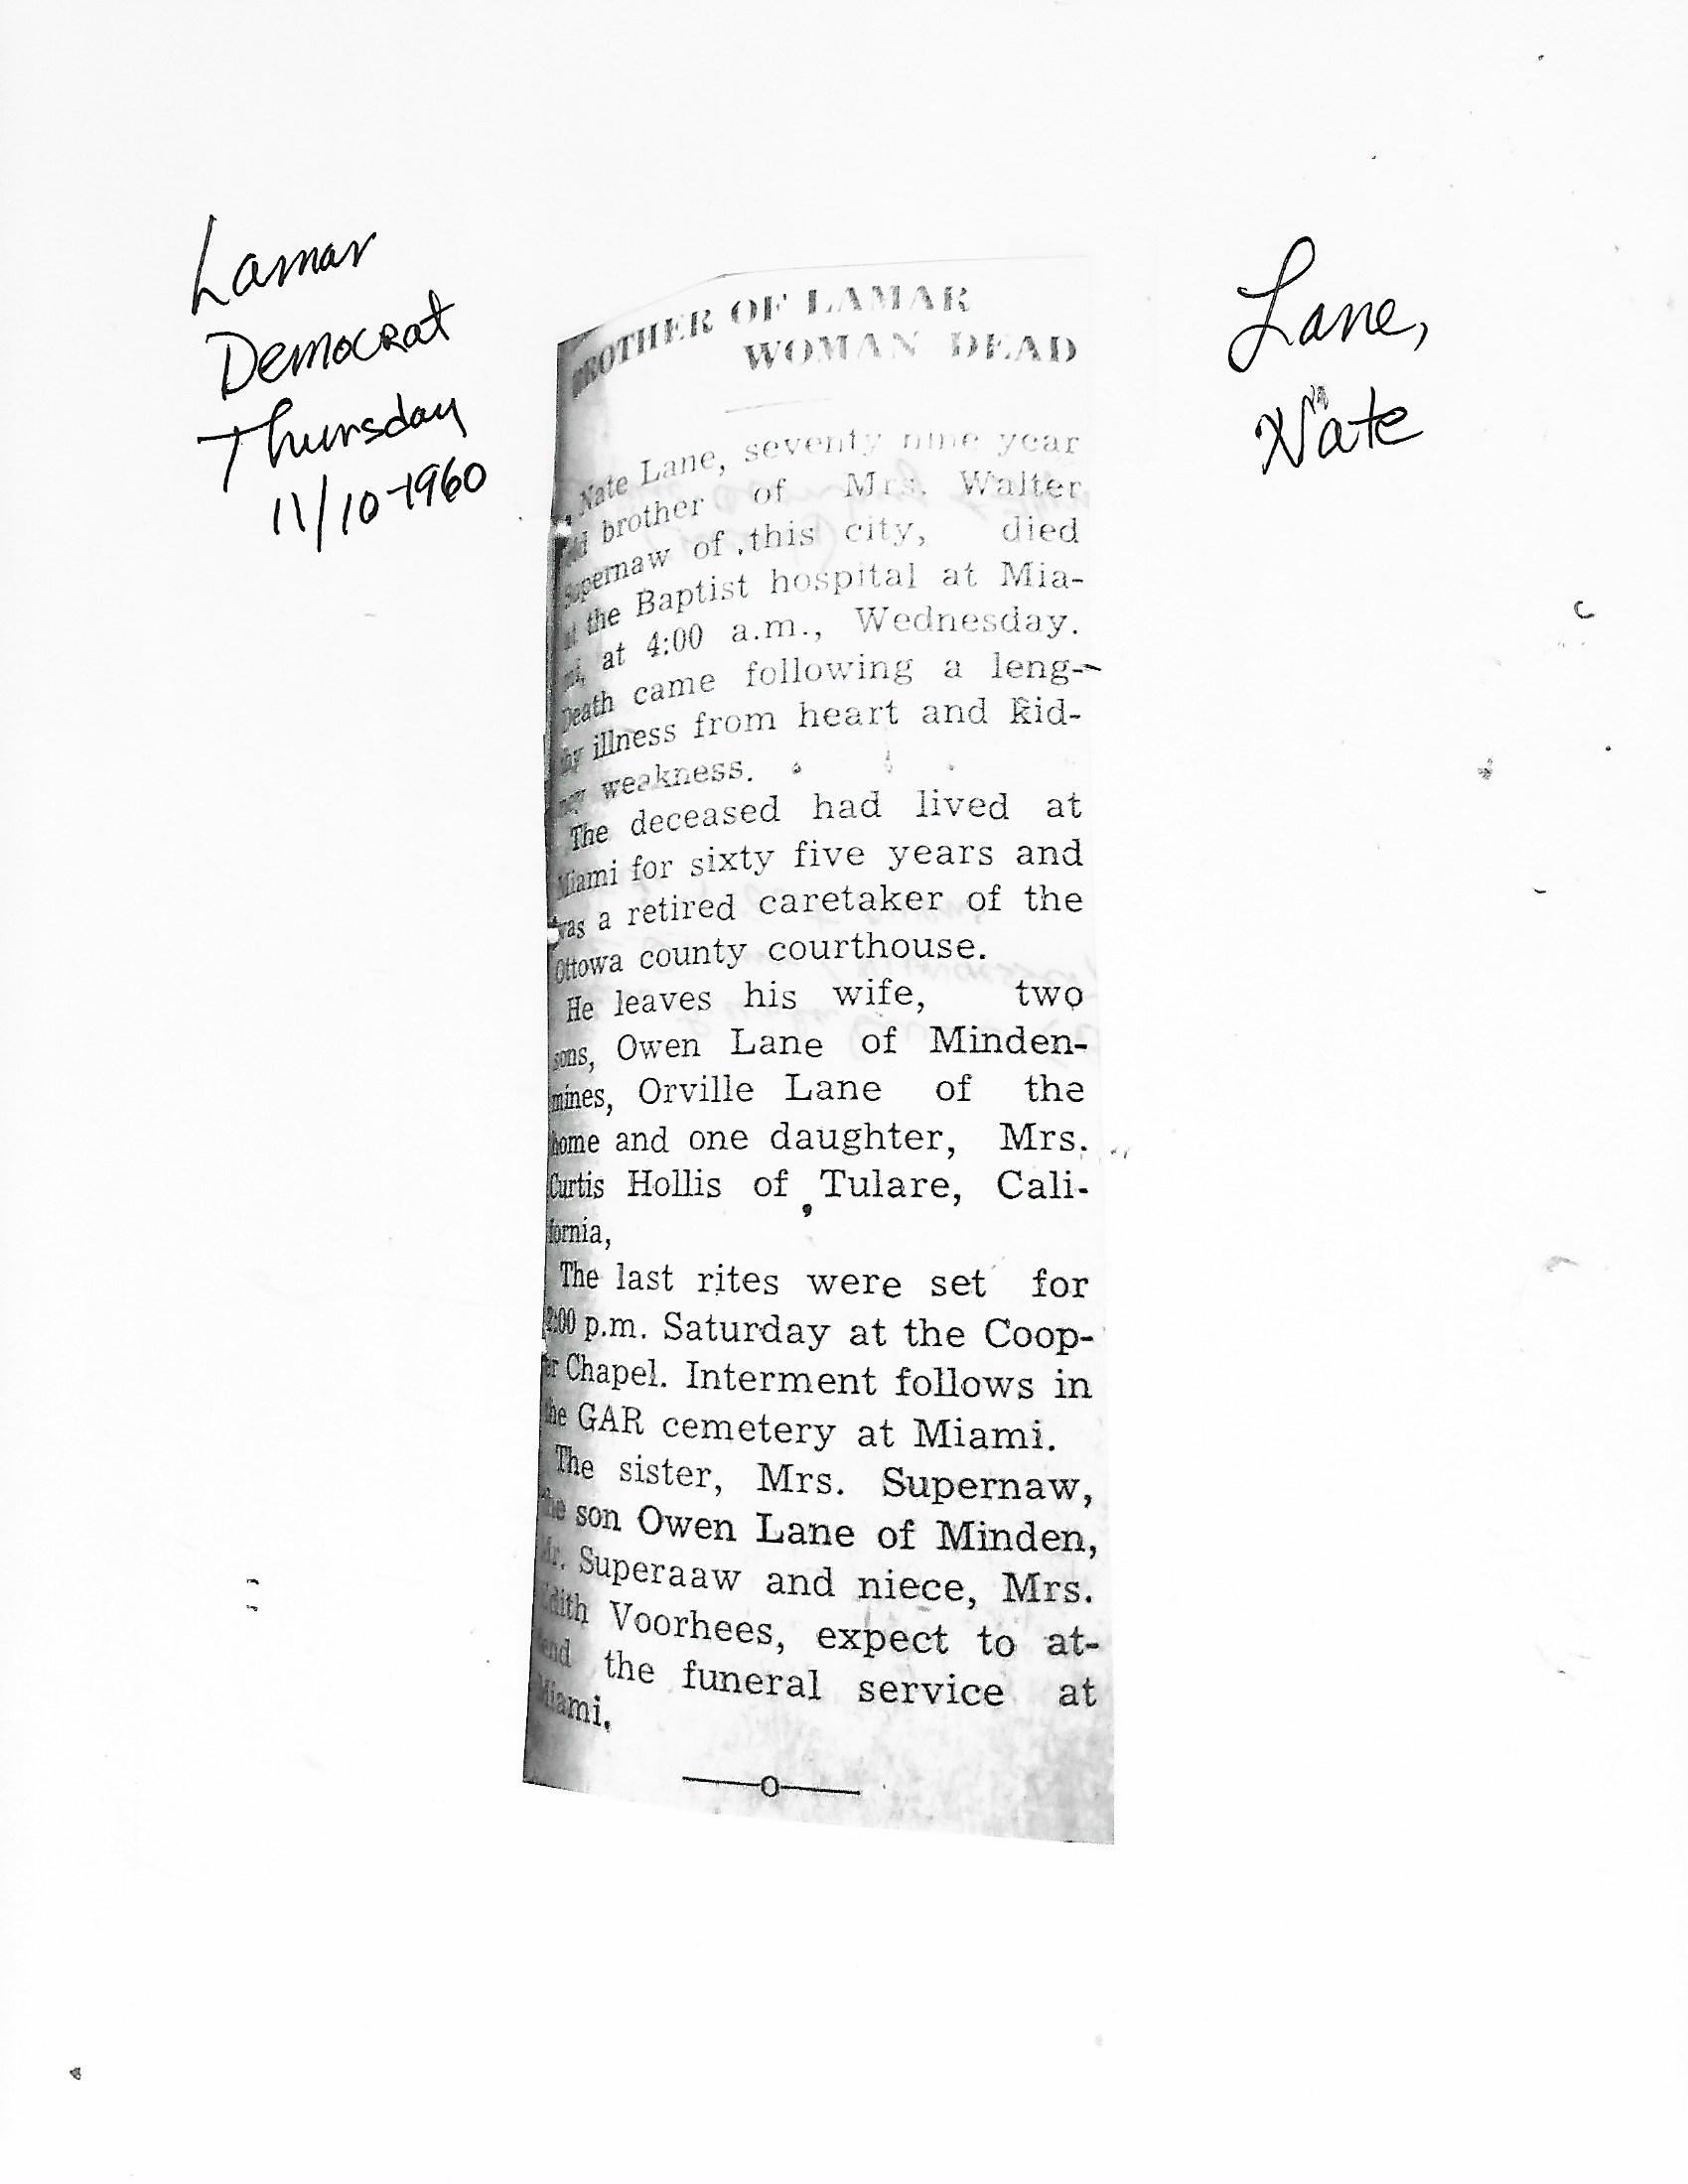 Lamar
Democrat
Thursday
11/10-1960
Lane,
Nate
BROTHER OF LAMAR
WOMAN DEAD
Nate Lane, seventy nine year
old brother of Mrs. Walter
Supernaw of this city, died
at the Baptist hospital at Mia-
mi, at 4:00 a.m., Wednesday.
Death came following a leng-
thy illness from heart and kid-
ney weakness.
The deceased had lived at
Miami for sixty five years and
was a retired caretaker of the
Ottowa county courthouse.
He leaves his wife, two
sons, Owen Lane of Minden-
mines, Orville Lane of the
home and one daughter, Mrs.
Curtis Hollis of Tulare, Cali-
fornia,
The last rites were set for
2:00 p.m. Saturday at the Coop-
er Chapel. Interment follows in
the GAR cemetery at Miami.
The sister, Mrs. Supernaw,
the son Owen Lane of Minden,
Mr. Superaaw and niece, Mrs.
Edith Voorhees, expect to at-
tend the funeral service at
Miami.